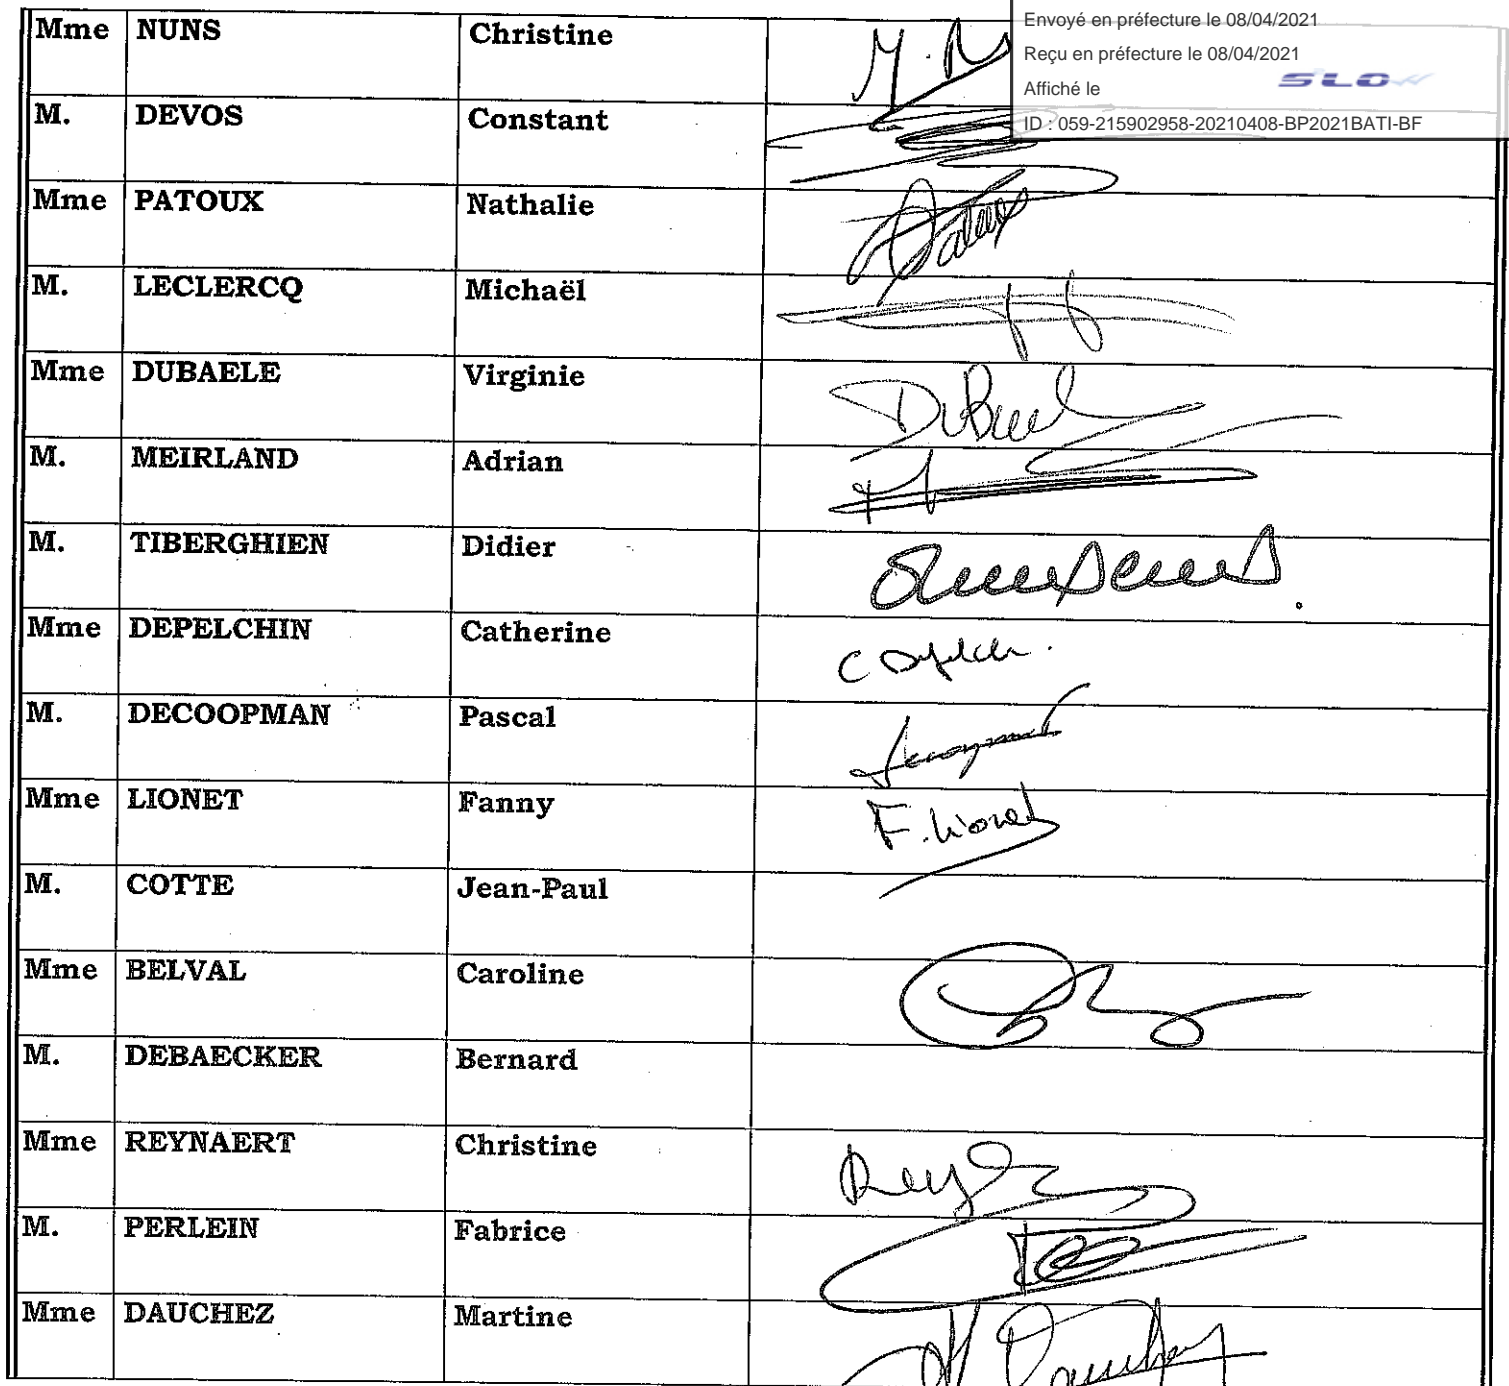 Envoyé en préfecture le 08/04/2021
Reçu en préfecture le 08/04/2021
Affiché le
SLOW
ID : 059-215902958-20210408-BP2021BATI-BF
Mme NUNS Christine
M. DEVOS Constant
Mme PATOUX Nathalie
M. LECLERCQ Michaël
Mme DUBAELE Virginie
M. MEIRLAND Adrian
M. TIBERGHIEN Didier
Mme DEPELCHIN Catherine
M. DECOOPMAN Pascal
Mme LIONET Fanny F. Lionet
M. COTTE Jean-Paul
Mme BELVAL Caroline
M. DEBAECKER Bernard
Mme REYNAERT Christine
M. PERLEIN Fabrice
Mme DAUCHEZ Martine